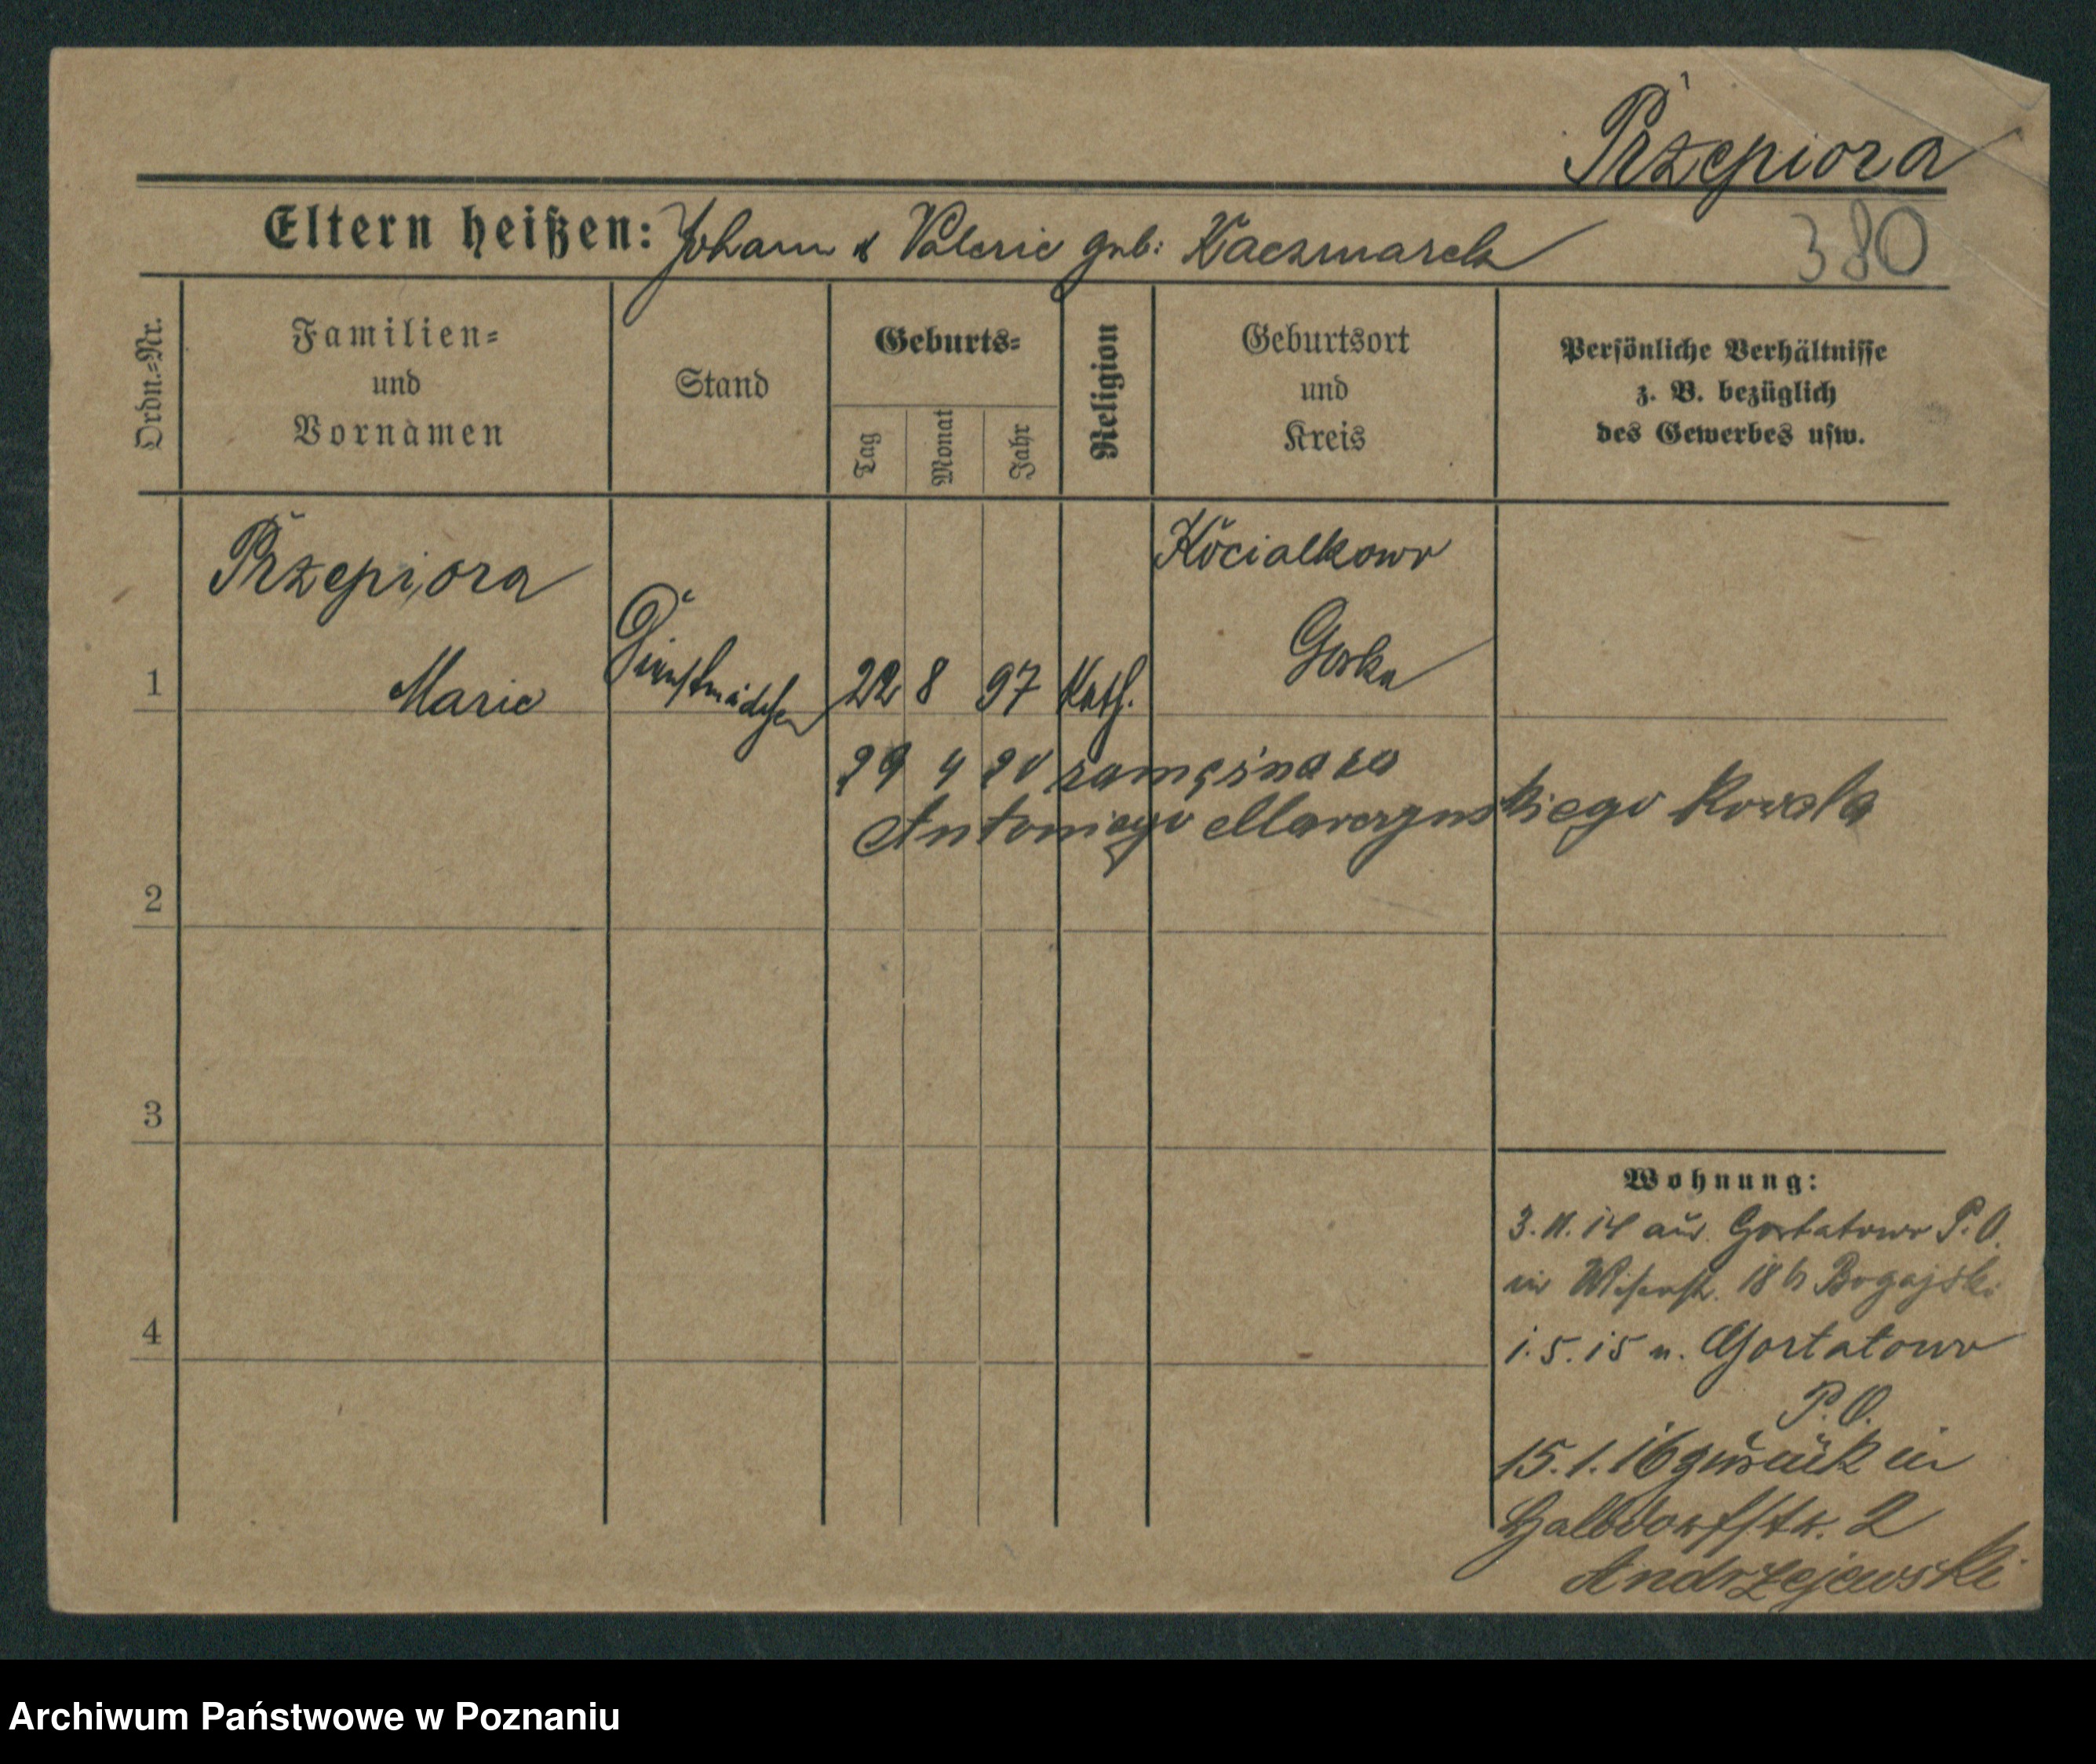 Przepiora
Eltern heißen: Johann & Valerie geb: Kaczmarek
380
Ordn.=Nr.
Familien=
und
Vornamen
Stand
Geburts=
Tag
Monat
Jahr
Religion
Geburtsort
und
Kreis
Persönliche Verhältnisse
z. B. bezüglich
des Gewerbes usw.
1
Przepiora
Marie
Dienstmädchen
22 8 97 Kath.
Kocialkowo
Gorka
29 4 20
Antoniego kowala
2
3
4
Wohnung:
3.11.14 aus Gortatowo P. O.
in 18 b Bogajski
1.5.15 n. Gortatowo
P. O.
15.1.16 zurück in
Halbdorfstr. 2
Andrzejewski
Archiwum Państwowe w Poznaniu